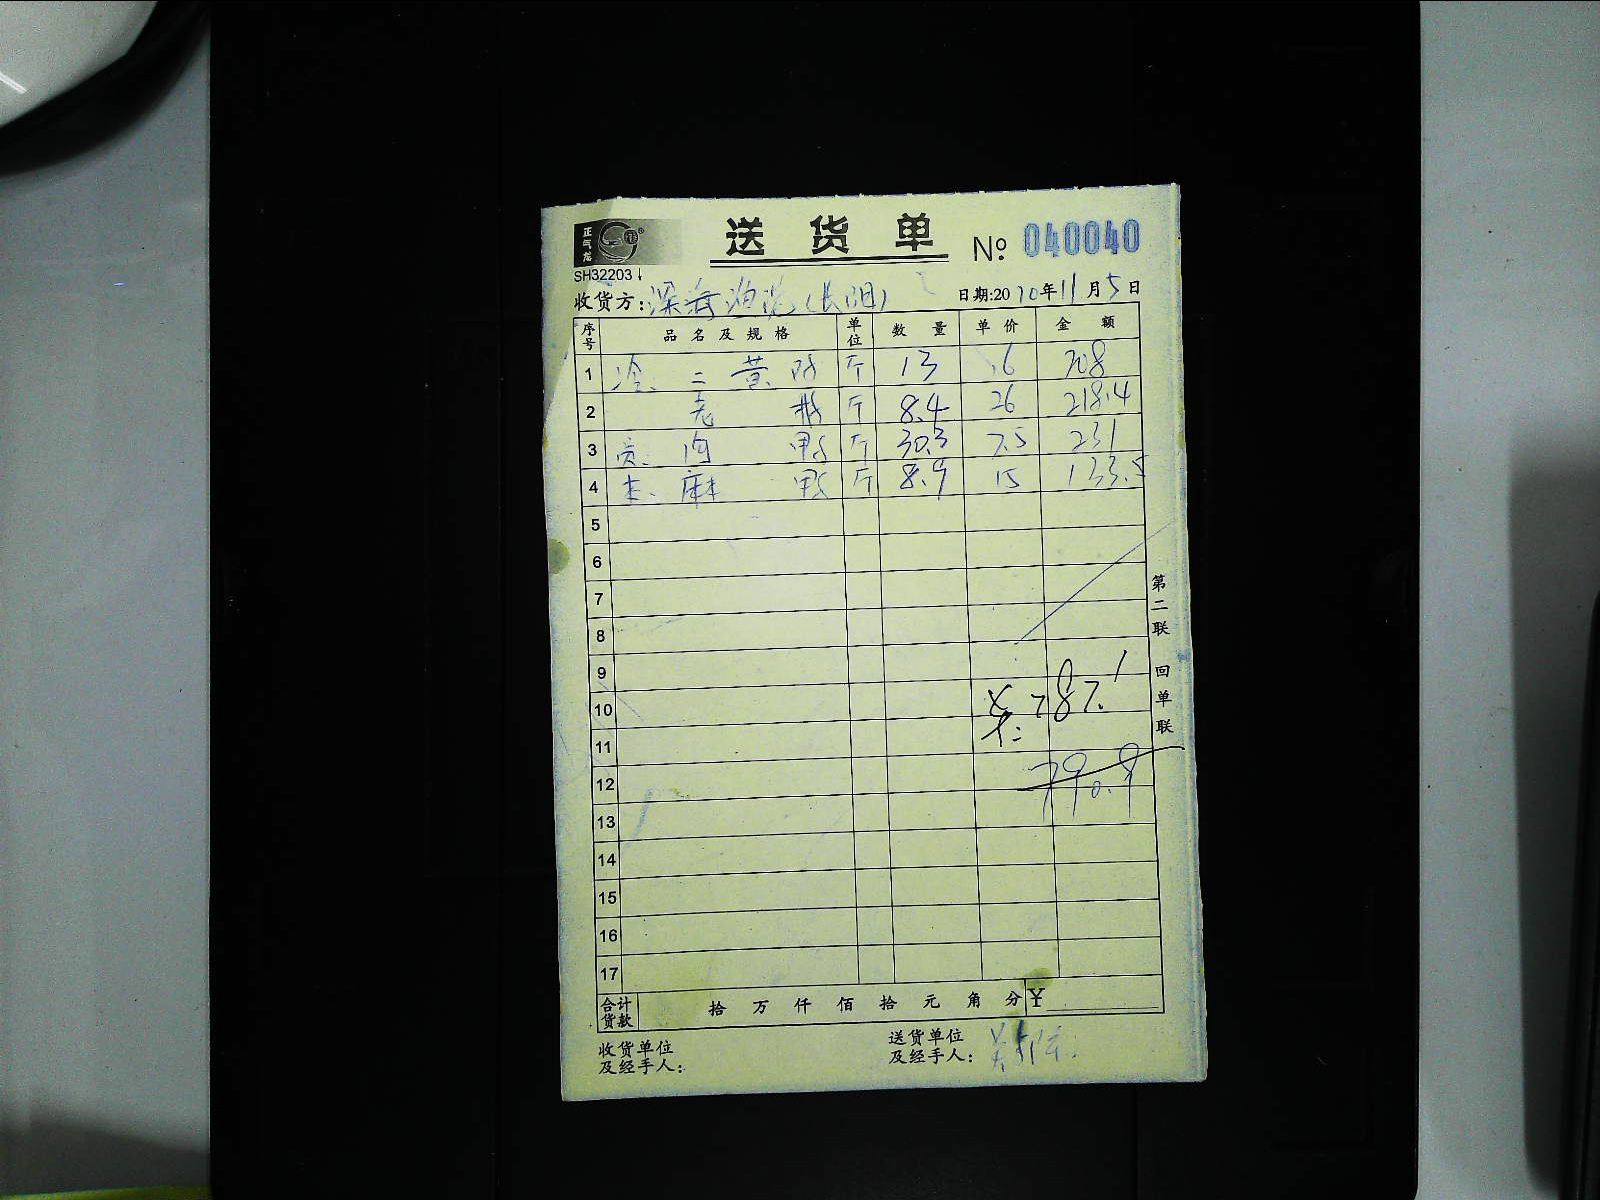 正气龙
送货单 № 040040
SH32203↓
收货方:深海泊港(长阳) 日期:2010年11月5日
序号 品名及规格 单位 数量 单价 金额
1 冷、二黄 斤 13 16 208
2 老 斤 8.4 26 218.4
3 肉 鸭 斤 30.3 7.5 231
4 麻 鸭 斤 8.9 15 133.5
5
6
7
8
9
10 787.1
11
12 790.9
13
14
15
16
17
第二联 回单联
合计货款 拾万仟佰拾元角分 ¥
收货单位及经手人:
送货单位及经手人: